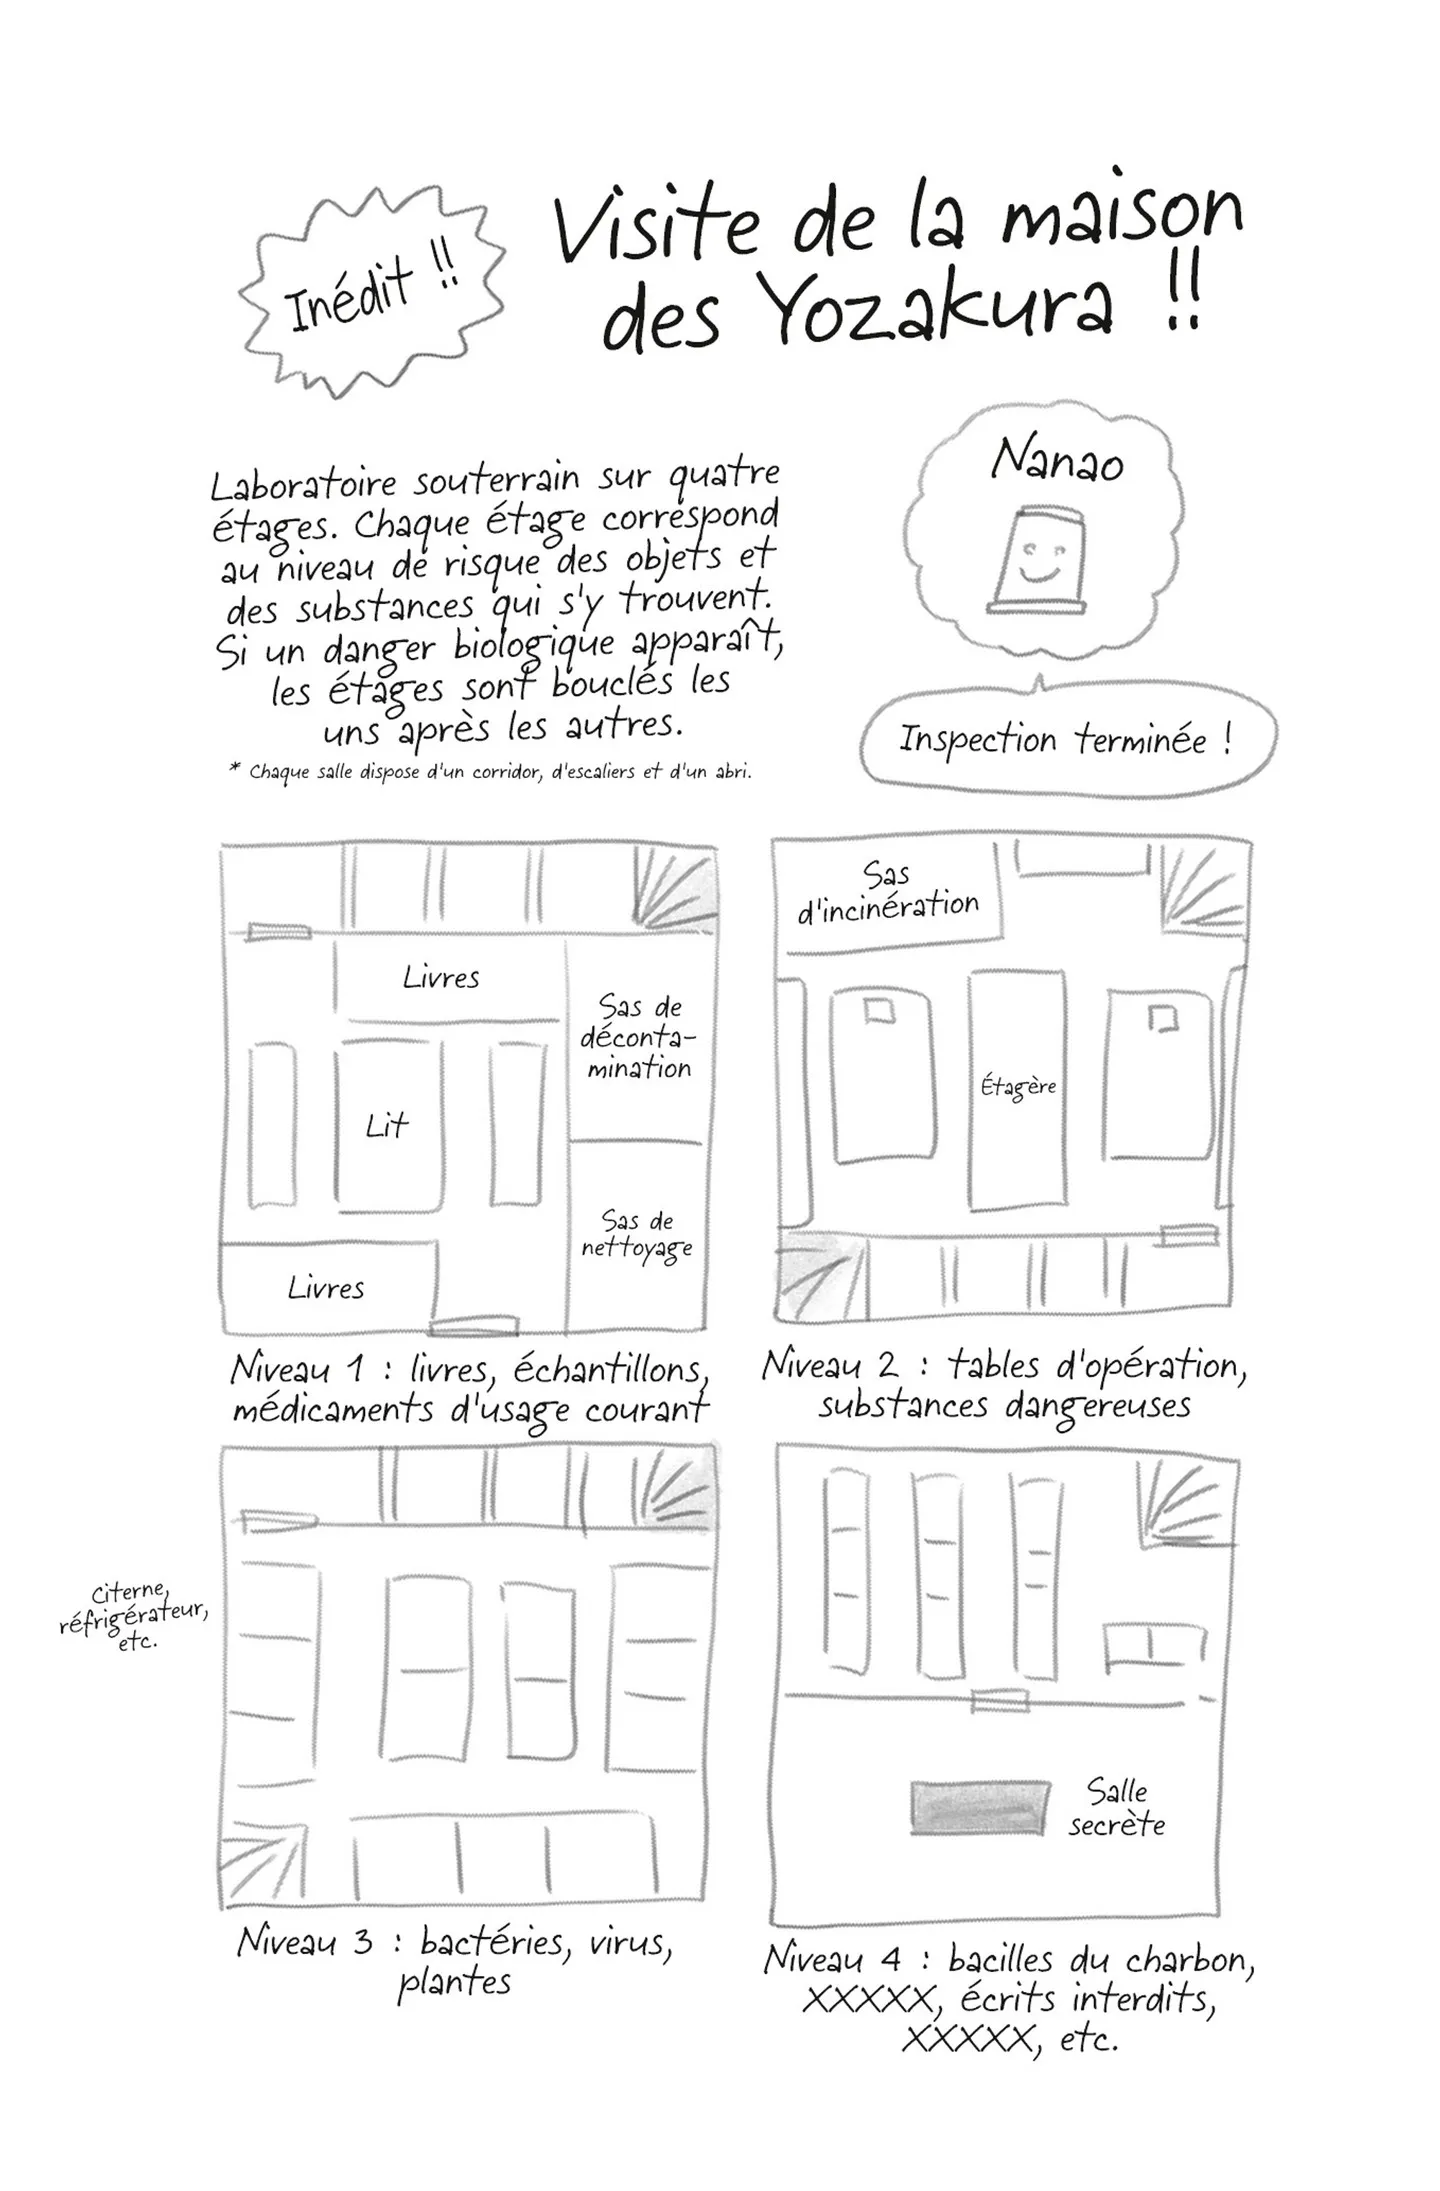 Inédit !!
Visite de la maison
des Yozakura !!
Laboratoire souterrain sur quatre
étages. Chaque étage correspond
au niveau de risque des objets et
des substances qui s'y trouvent.
Si un danger biologique apparaît,
les étages sont bouclés les
uns après les autres.
* Chaque salle dispose d'un corridor, d'escaliers et d'un abri.
Nanao
Inspection terminée !
Livres
Sas de
déconta-
mination
Lit
Sas de
nettoyage
Livres
Niveau 1 : livres, échantillons,
médicaments d'usage courant
Sas
d'incinération
Étagère
Niveau 2 : tables d'opération,
substances dangereuses
citerne,
réfrigérateur,
etc.
Niveau 3 : bactéries, virus,
plantes
Salle
secrète
Niveau 4 : bacilles du charbon,
XXXXX, écrits interdits,
XXXXX, etc.